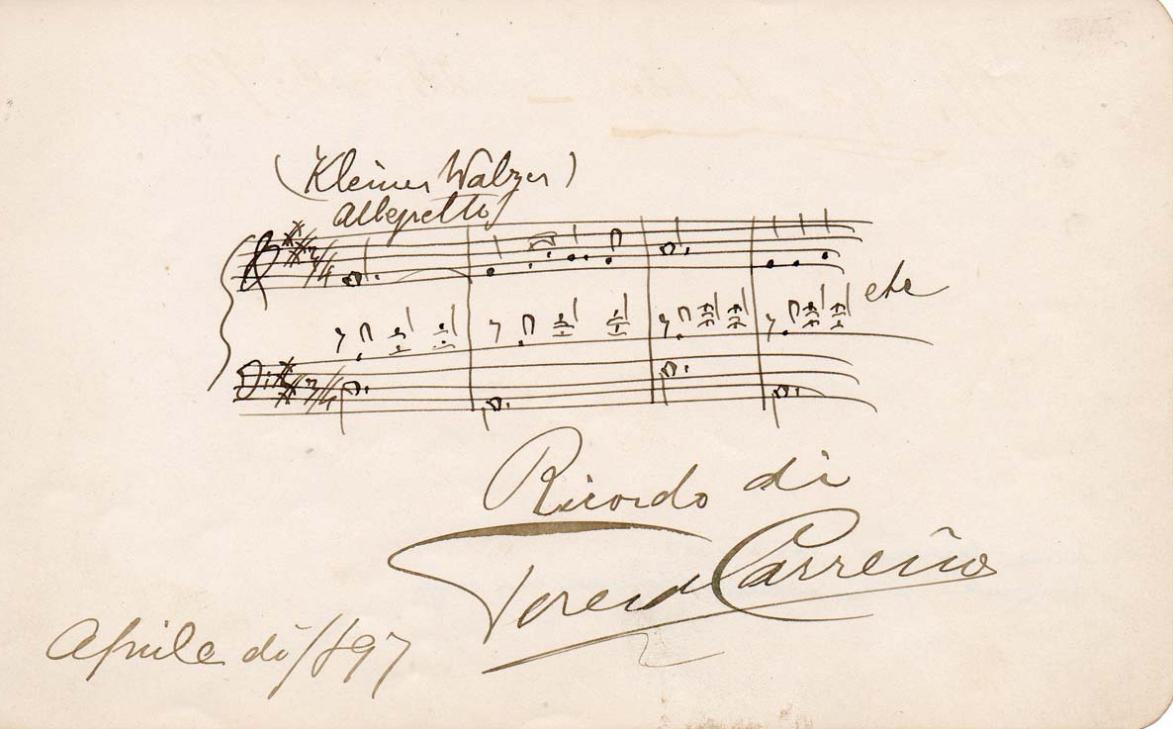 (Kleiner Walzer)
Allegretto
3/4
etc
3/4
Ricordo di
Teresa Carreño
Aprile di/1897